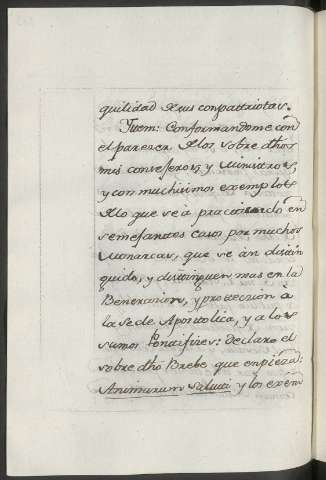 quilidad de sus compattriotas.
Ytem: Conformandome con
el parezer de los sobre dhos
mis confesores, y Ministros,
y con muchisimos exemplos
de lo que se à practicado en
semejantes casos por muchos
Monarcas, que se àn distin
guido, y distinguen mas en la
Beneracion, y proteccion à
la Sede Apostolica, y a los
sumos Pontifizes: declaro el
sobre dho Brebe que enpieza:
Animarum Saluti y los exem